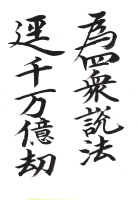 為四衆説法
逕千万億劫